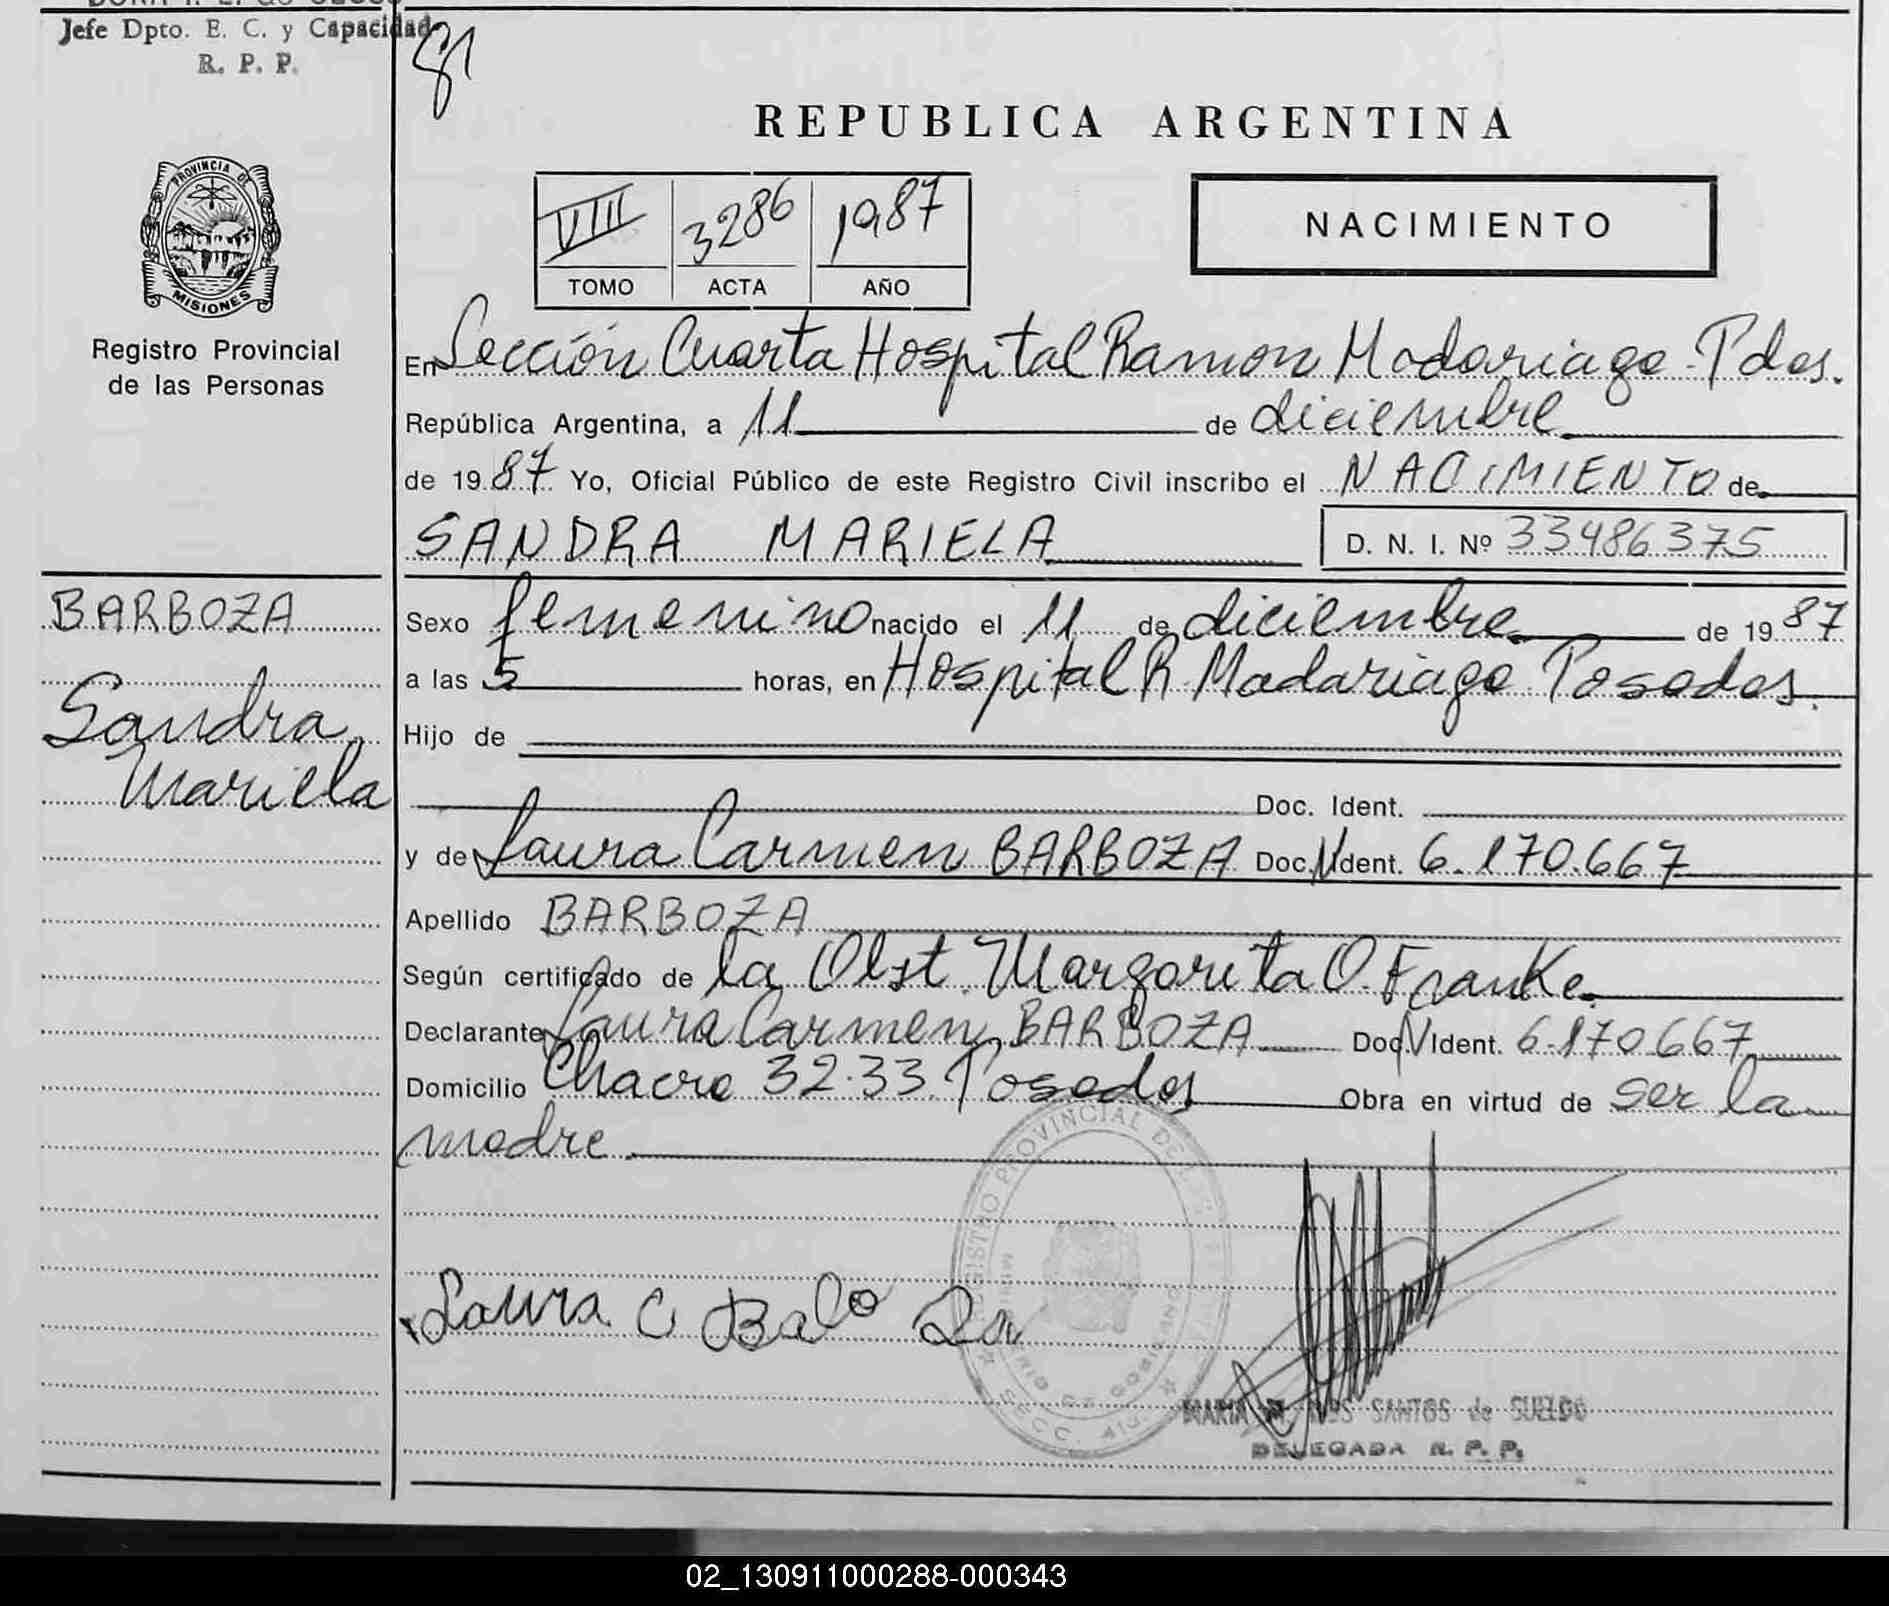 Jefe Dpto. E. C. y Capacidad
R. P. P.
81
REPUBLICA ARGENTINA
PROVINCIA DE
MISIONES
Registro Provincial
de las Personas
VIII 3286 1987
TOMO ACTA AÑO
NACIMIENTO
En Sección Cuarta Hospital Ramon Madariaga - Pdas.
República Argentina, a 11 de diciembre
de 1987 Yo, Oficial Público de este Registro Civil inscribo el NACIMIENTO de
SANDRA MARIELA D. N. I. Nº 33486375
BARBOZA
Sandra
Mariela
Sexo femenino nacido el 11 de diciembre de 1987
a las 5 horas, en Hospital R. Madariaga Posadas.
Hijo de
Doc. Ident.
y de Laura Carmen BARBOZA Doc. N Ident. 6.170.667
Apellido BARBOZA
Según certificado de la Obst. Margarita O. Franke.
Declarante Laura Carmen BARBOZA Doc. N Ident. 6.170.667
Domicilio Chacra 32-33. Posadas Obra en virtud de ser la
madre
REGISTRO PROVINCIAL DE
DE GOBIERNO
SECC. 4ta.
Laura C Balo Za
MARIA DOS SANTOS de SUELDO
DELEGADA R. P. P.
02_130911000288-000343